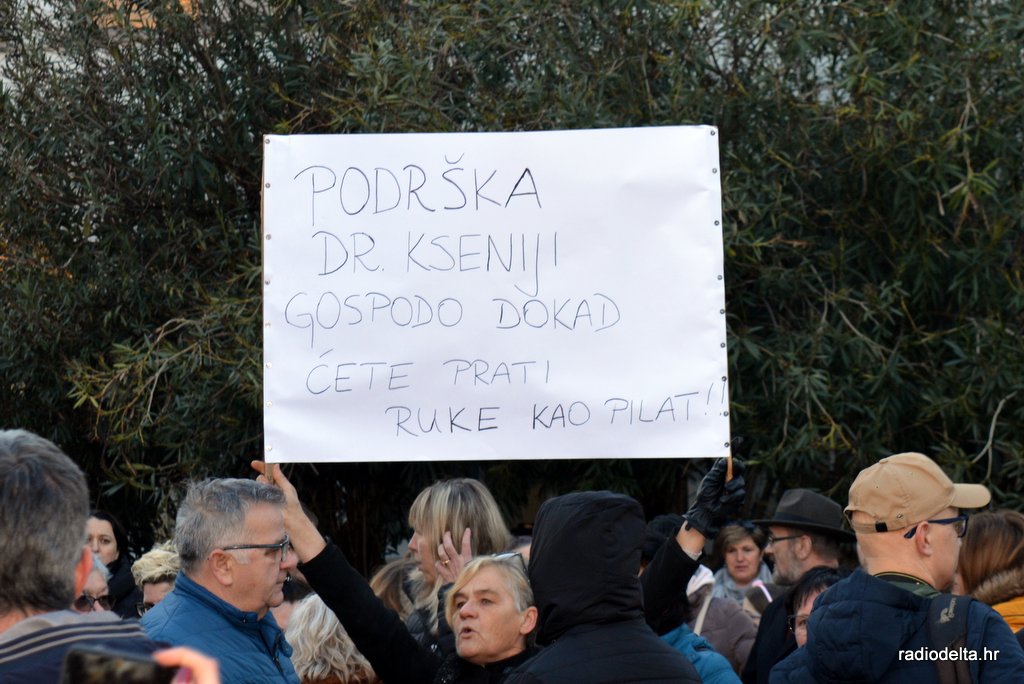 PODRŠKA
DR. KSENIJI
GOSPODO DOKAD
ĆETE PRATI
RUKE KAO PILAT!!
radiodelta.hr